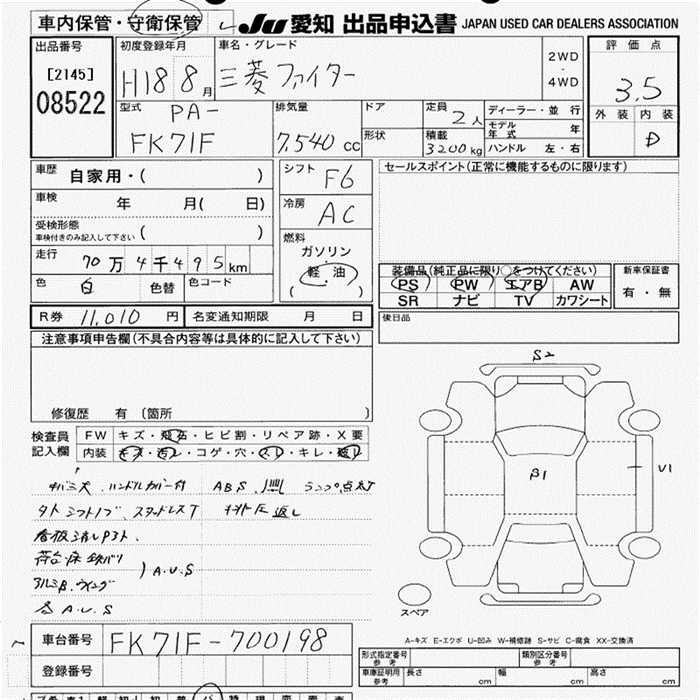 車内保管・守衛保管 JU 愛知 出品申込書 JAPAN USED CAR DEALERS ASSOCIATION
出品番号 初度登録年月 車名・グレード 2WD・4WD 評価点
[2145] H18 8月 三菱 ファイター 3.5
08522 外装 内装
型式 排気量 ドア 定員 2人 ディーラー・並行 D
PA- モデル年式 年
FK71F 7,540 cc 形状 積載 3200kg ハンドル 左・右
車歴 自家用・( ) シフト F6 セールスポイント(正常に機能するものに限ります)
車検 年 月( 日) 冷房 AC
受検形態
車検付きのみ記入して下さい ( ) 燃料
走行 70万4千495km ガソリン
軽油
( )
装備品(純正品に限り○をつけてください) 新車保証書
PS PW エアB AW 有・無
SR ナビ TV カワシート
色 白 色替 色コード
R券 11,010 円 名変通知期限 月 日 後日品
注意事項申告欄(不具合内容等は具体的に記入して下さい)
修復歴 有 (箇所 )
検査員記入欄 FW キズ・飛石・ヒビ割・リペア跡・X要
内装 キズ・汚レ・コゲ・穴・スレ・キレ・破レ
S2
β1
U1
ハンドルカバー付 ABS ランプ点灯
シフトノブ、スタッドレスT
A.U.S
アルミB.ウイング
A.U.S
スペア
A-キズ E-エクボ U-凹み W-補修跡 S-サビ C-腐食 XX-交換済
車台番号 FK71F-700198
登録番号
形式指定番号 参考 類別区分番号 参考
車庫証明用 参考 長さ cm 幅 cm 高さ cm